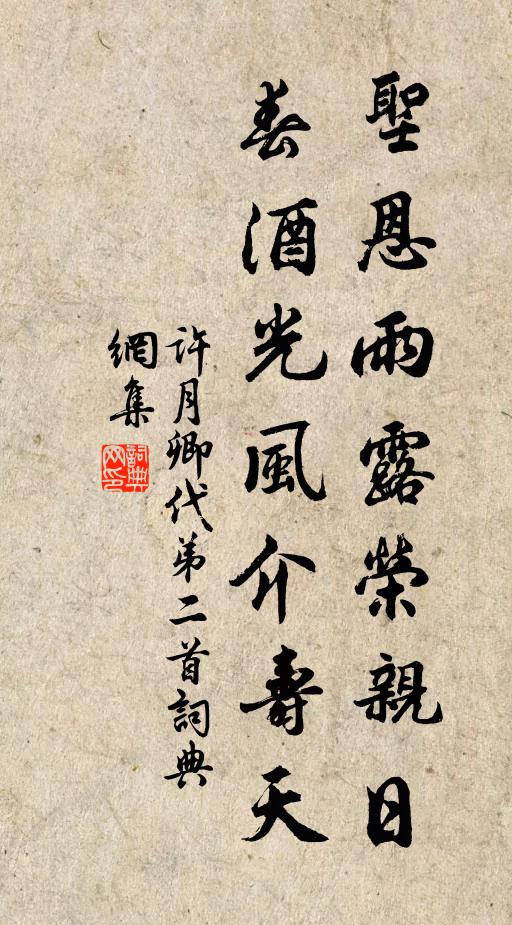 聖恩雨露榮親日
春酒光風介壽天
許月卿代第二首詞典
網集
詞典網印